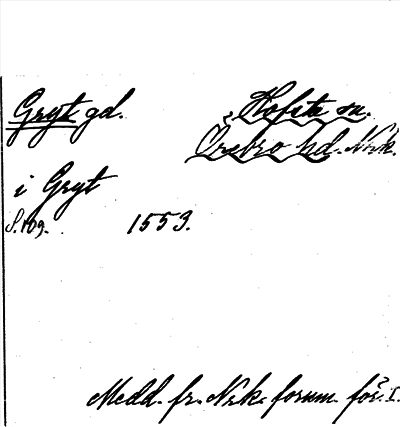 Gryt gd.
Hofsta sn.
Örebro hd. Nrk.
i Gryt
S. 109.
1553.
Medd. fr. Nrk. fornm. för. I.